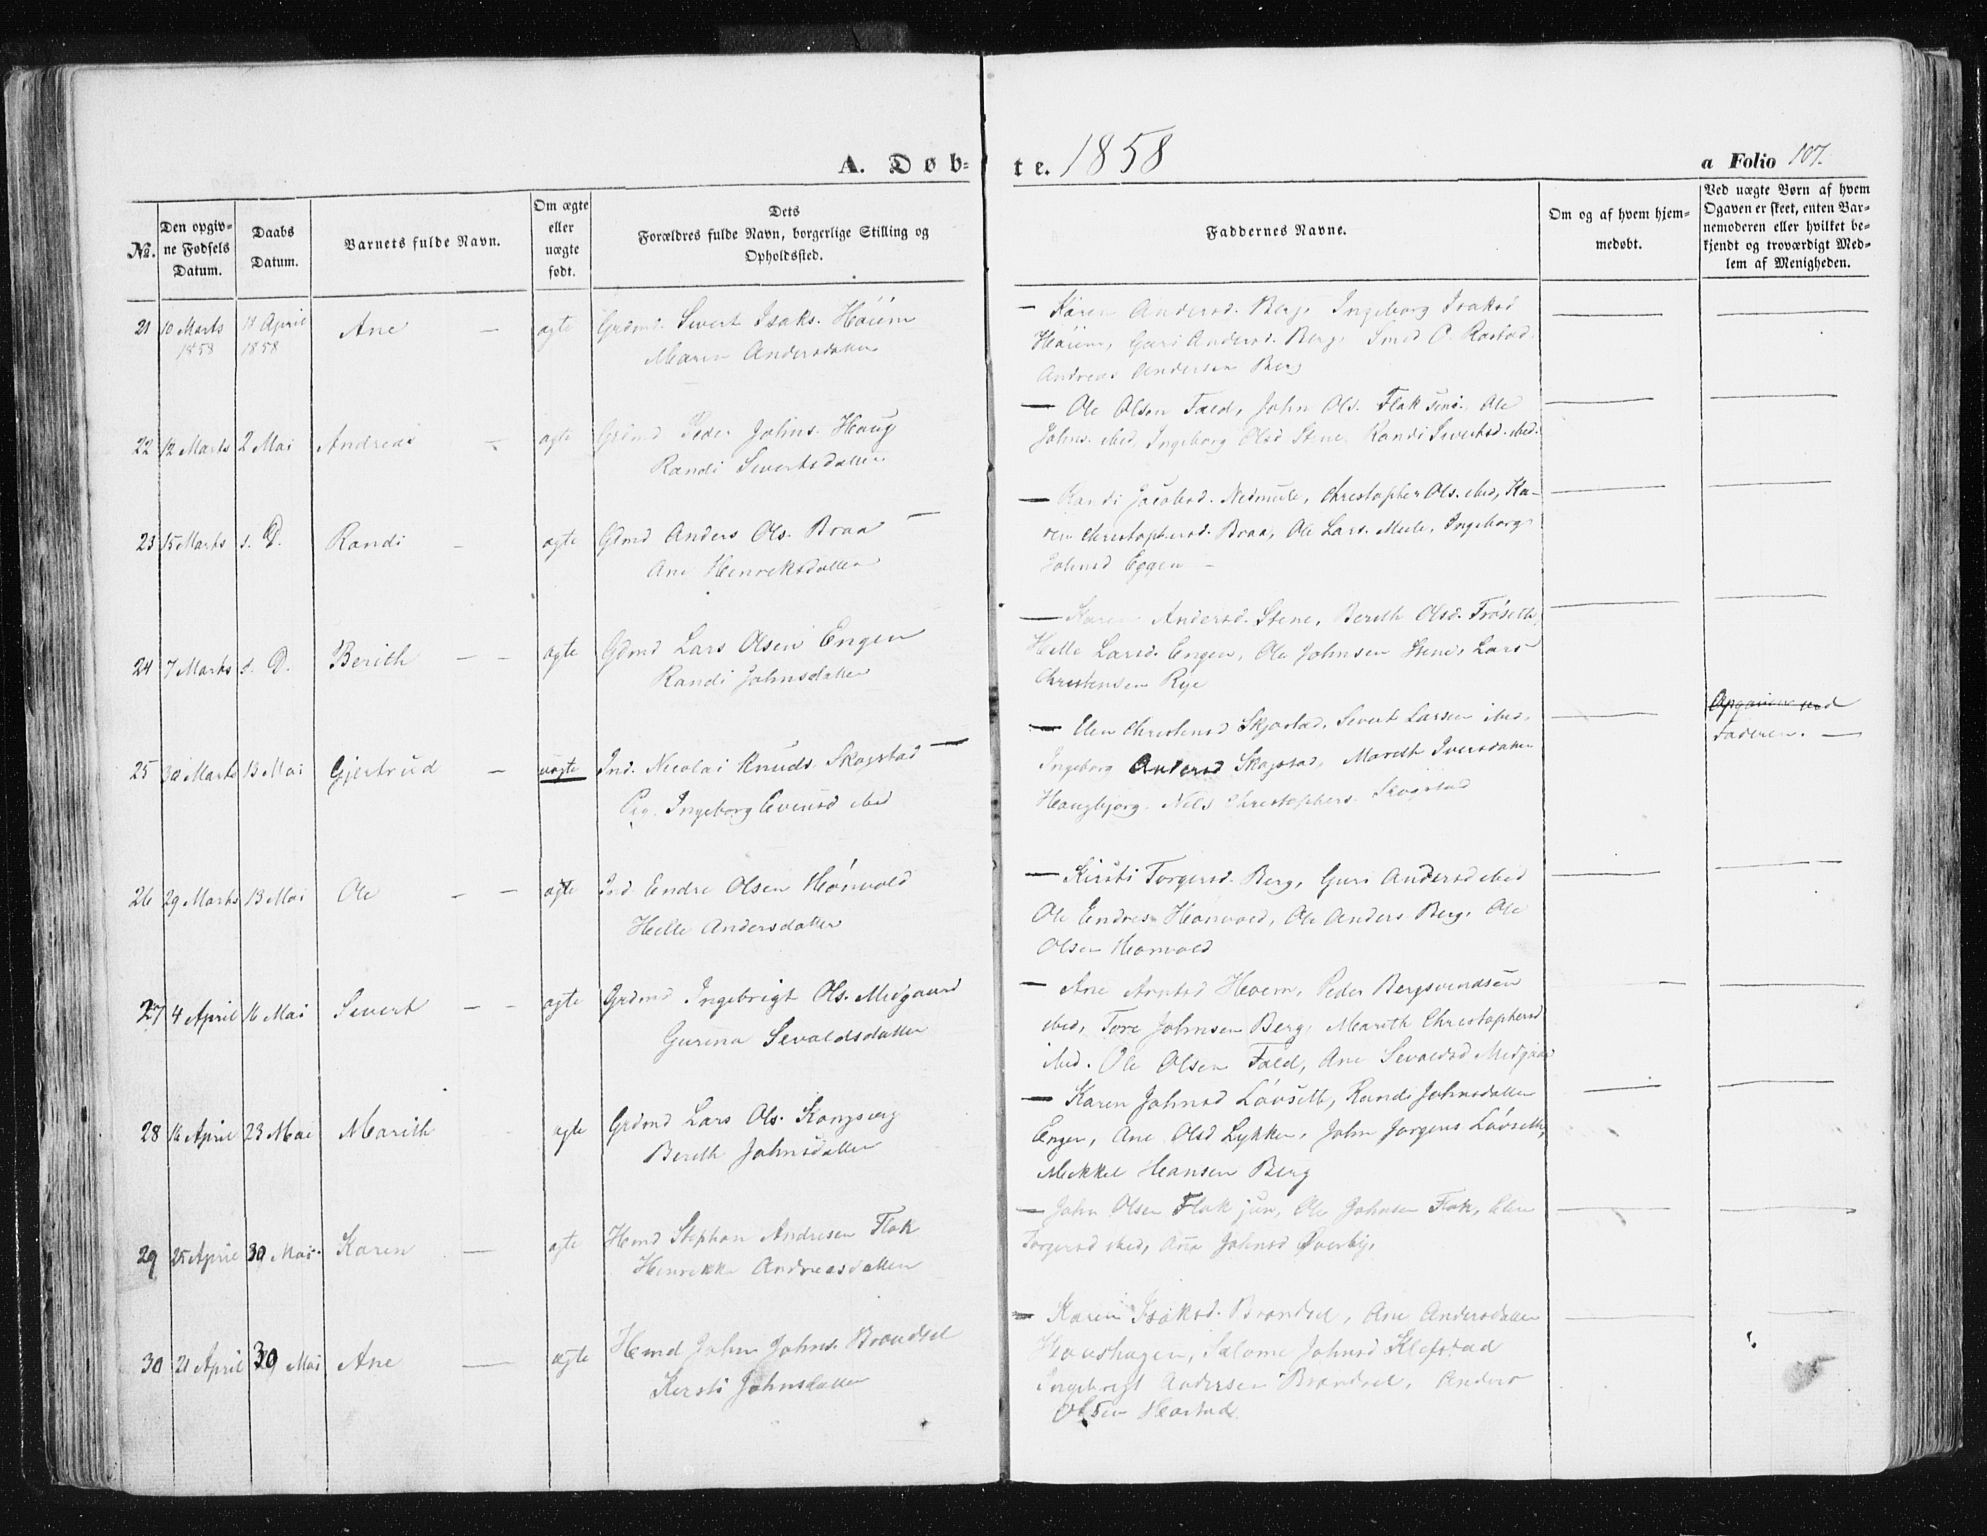 A. Døbte. 1858
a Folio 107.
No.
Den opgivne Fødsels Datum.
Daabs Datum.
Barnets fulde Navn.
Om ægte eller uægte født.
Dets Forældres fulde Navn, borgerlige Stilling og Opholdssted.
Faddernes Navne.
Om og af hvem hjemmedøbt.
Ved uægte Børn af hvem Ogaven er skeet, enten Barnemoderen eller hvilket bekjendt og troværdigt Medlem af Menigheden.
21 10 Marts 1858 11 April 1858 Ane — ægte Grdmd. Sivert Isaks. Höiem
Maren Andersdatter
— Karen Andersd. Berg, Ingeborg Isaksd
Höiem, Guri Andersd. Berg,
Andreas Andersen Berg
22 12 Marts 2 Mai Andreas — ægte Grdmd Peder Johns. Haug
Randi Sivertsdatter
— Ole Olsen Fald, John Ols. Flak sen., Ole
Johns. ibid, Ingeborg Olsd Stene, Randi Sivertsd. ibid.
23 15 Marts s. D. Randi — ægte Gdmd Anders Ols. Braa —
Ane Henriksdatter
— Randi Jacobsd. Nedmule, Christopher Ols. ibid, Ka-
ren Christophersd. Braa, Ole Lars. Mule, Ingeborg
Johnsd Eggen —
24 7 Marts s. D. Berith — — ægte Gdmd Lars Olsen Engen
Randi Johnsdatter
— Karen Andersd. Stene, Berith Olsd. Fröseth,
Helle Larsd. Engen, Ole Johnsen Stene, Lars
Christensen Rye
25 30 Marts 13 Mai Gjertrud — uægte Ind. Nicolai Knuds. Skogstad —
Pig. Ingeborg Evensd ibid
— Elen Christensd Skjøstad, Sivert Larsen ibid,
Ingeborg Andersd Skogstad, Marith Iversdatter
Haugbjørg. Nils Christophers. Skogstad
Faderen. —
26 29 Marts 13 Mai Ole — — ægte Ind. Endre Olsen Hönvold
Helle Andersdatter
— Kirsti Torgersd. Berg, Guri Andersd ibid
Ole Endresen Hönvold, Ole Anders Berg, Ole
Olsen Hönvold
27 4 April 16 Mai Sivert — — ægte Grdmd Ingebrigt Ols. Midgaard
Gurina Sevaldsdatter
— Ane Arntsd Hoem, Peder Bergsvendsen
ibid, Tore Johnsen Berg, Marith Christophersd
ibid. Ole Olsen Fald, Ane Sevaldsd Midgaard
28 16 April 23 Mai Marith ægte Grdmd Lars Ols. Kongsveg
Berith Johnsdatter
— Karen Johnsd Lövseth, Randi Johnsdatter
Engen, Ane Olsd Lykken, John Jørgens Lövseth,
Mikkel Hansen Berg
29 25 April 30 Mai. Karen — ægte Hmd Stephan Andresen Flak
Henrikke Andreasdatter
— John Olsen Flak jun, Ole Johnsen Flak, Elen
Torgersd ibid, Ane Johnsd Øverby,
30 21 April 30 Mai Ane — ægte Hmd John Johns. Brandsel
Kersti Johnsdatter
— Karen Isaksd. Brandsel, Ane Andersdatter
Haushagen, Salome Johnsd Klefstad
Ingebrigt Andersen Brandsel, Anders
Olsen Harstad